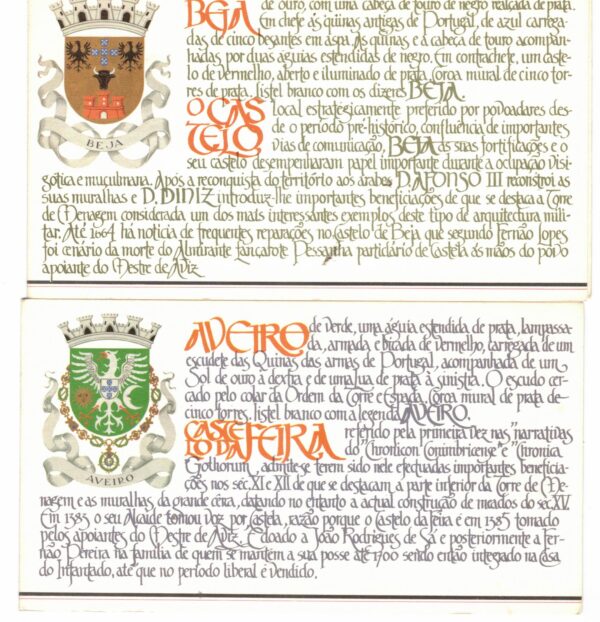 BEJA de ouro, com uma cabeça de touro de negro realçada de prata.
Em chefe às quinas antigas de Portugal, de azul carrega-
das de cinco besantes em aspa. As quinas e a cabeça de touro acompan-
hadas, por duas águias estendidas de negro. Em contrachefe, um caste-
lo de vermelho, aberto e iluminado de prata. Coroa mural de cinco tor-
res de prata. Listel branco com os dizeres BEJA.
BEJA
O CAS
TELO
local estratégicamente preferido por povoadores des-
de o período pré-histórico, confluência de importantes
vias de comunicação, BEJA as suas fortificações e o
seu castelo desempenharam papel importante durante a ocupação visi-
gótica e muçulmana. Após a reconquista do território aos árabes D. AFONSO III reconstroi as
suas muralhas e D. DINIZ introduz-lhe importantes beneficiações de que se destaca a Torre
de Menagem considerada um dos mais interessantes exemplos deste tipo de arquitectura mili-
tar. Até 1664 há notícia de frequentes reparações no Castelo de Beja que segundo Fernão Lopes
foi cenário da morte do Almirante Lançarote Pessanha partidário de Castela às mãos do povo
apoiante do Mestre de Aviz.
AVEIRO de verde, uma águia estendida de prata, lampassa-
da, armada e bicada de vermelho, carregada de um
escudete das Quinas das armas de Portugal, acompanhada de um
Sol de ouro à dextra e de uma lua de prata à sinistra. O escudo cer-
cado pelo colar da Ordem da Torre e Espada. Coroa mural de prata de
cinco torres. Listel branco com a legenda AVEIRO.
AVEIRO
CASTE
LO DA FEIRA
referido pela primeira vez nas "narrativas
do "Chronicon Conimbricense" e "Chronica
Gothorum", admite-se terem sido nele efectuadas importantes beneficia-
ções nos séc. XI e XII de que se destacam a parte inferior da Torre de Me-
nagem e as muralhas da grande cêrca, datando no entanto a actual construção de meados do séc. XV.
Em 1383 o seu Alcaide tomou voz por Castela, razão porque o Castelo da Feira é em 1385 tomado
pelos apoiantes do Mestre de Aviz. É doado a João Rodrigues de Sá e posteriormente a Fer-
não Pereira na família de quem se mantém a sua posse até 1700 sendo então integrado na Casa
do Infantado, até que no período liberal é vendido.